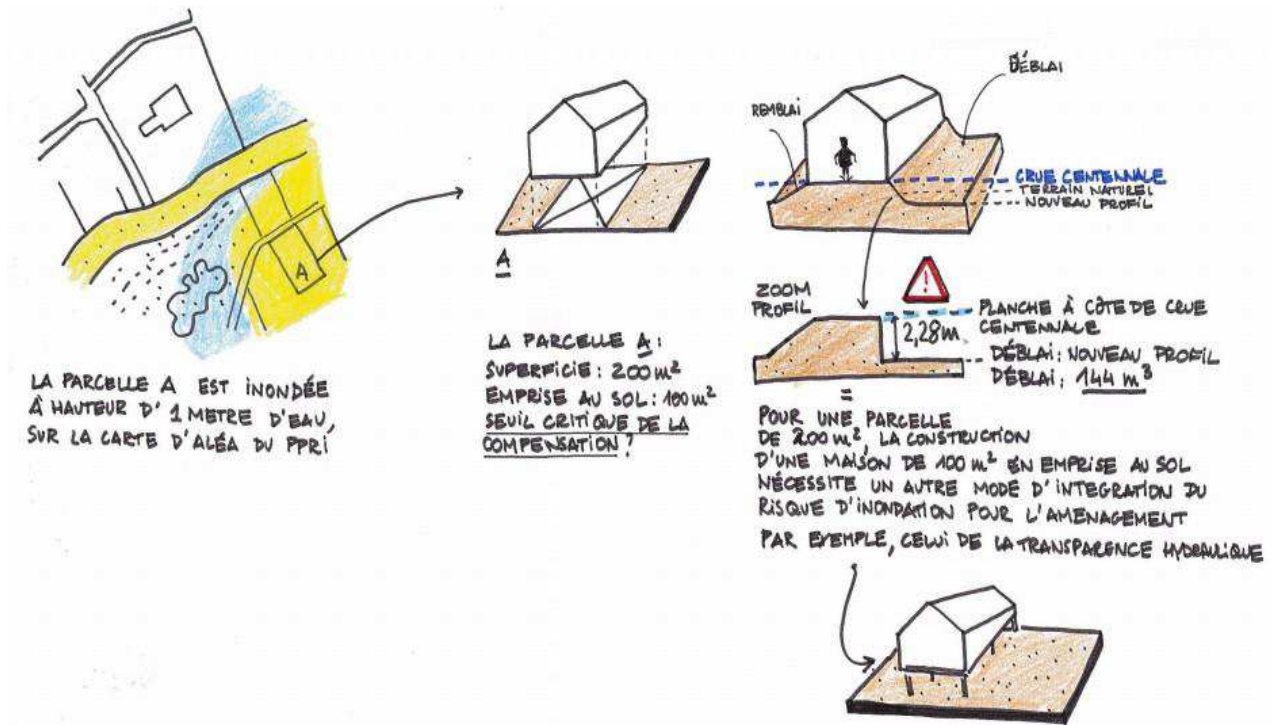 A
LA PARCELLE A EST INONDÉE
À HAUTEUR D' 1 METRE D'EAU,
SUR LA CARTE D'ALÉA DU PPRI
A
LA PARCELLE A :
SUPERFICIE : 200 m²
EMPRISE AU SOL : 100 m²
SEUIL CRITIQUE DE LA
COMPENSATION !
DÉBLAI
REMBLAI
CRUE CENTENNALE
TERRAIN NATUREL
NOUVEAU PROFIL
ZOOM
PROFIL
!
2,28m
PLANCHE À CÔTE DE CRUE
CENTENNALE
DÉBLAI : NOUVEAU PROFIL
DÉBLAI : 144 m³
=
POUR UNE PARCELLE
DE 200 m², LA CONSTRUCTION
D'UNE MAISON DE 100 m² EN EMPRISE AU SOL
NÉCESSITE UN AUTRE MODE D'INTEGRATION DU
RISQUE D'INONDATION POUR L'AMENAGEMENT
PAR EXEMPLE, CELUI DE LA TRANSPARENCE HYDRAULIQUE